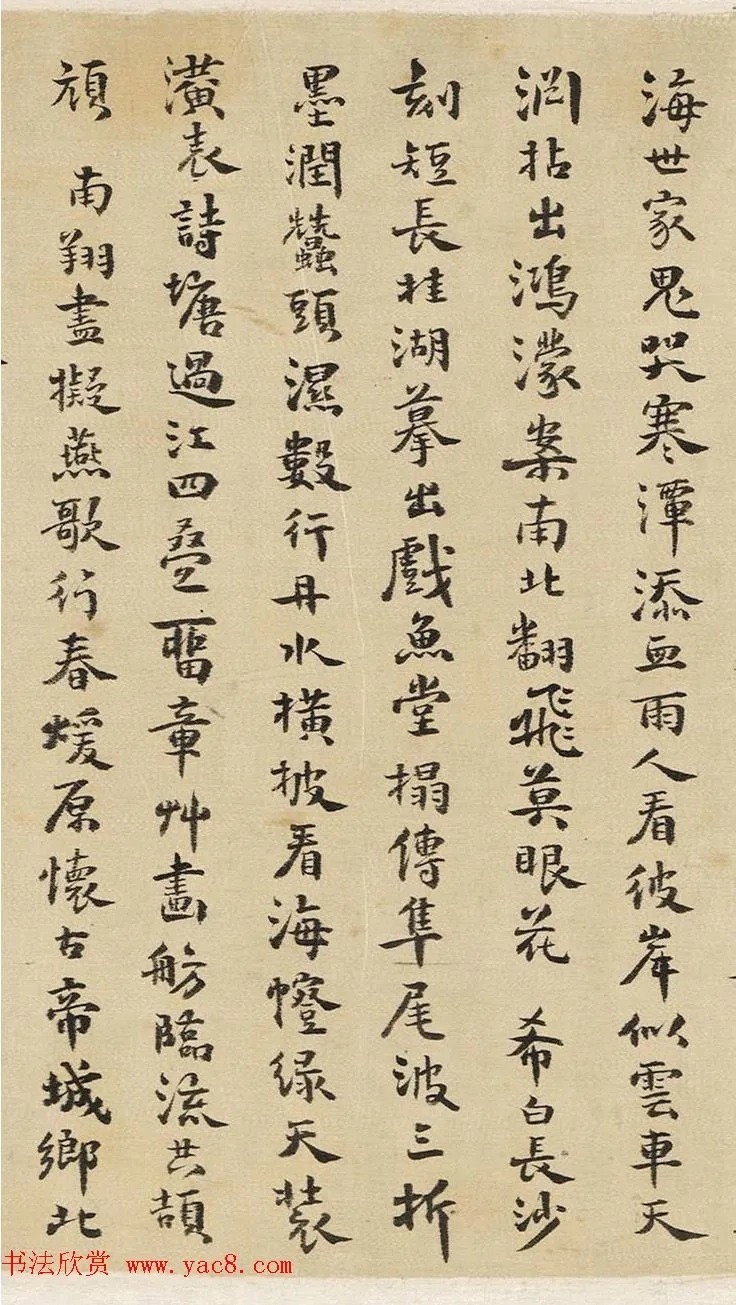 海世家鬼哭寒潭添血雨人看彼岸似雲車天
淵拈出鴻濛案南北翻飛莫眼花 希白長沙
刻短長桂湖摹出戲魚堂搨傳隼尾波三折
墨潤蠶頭濕數行丹水橫披看海幢绿天裝
潢表詩塘過江四疊舊章艸畫舫臨流共頡
頏 南翔盡擬燕歌行春煖原懷古帝城鄉北
书法欣赏 www.yac8.com